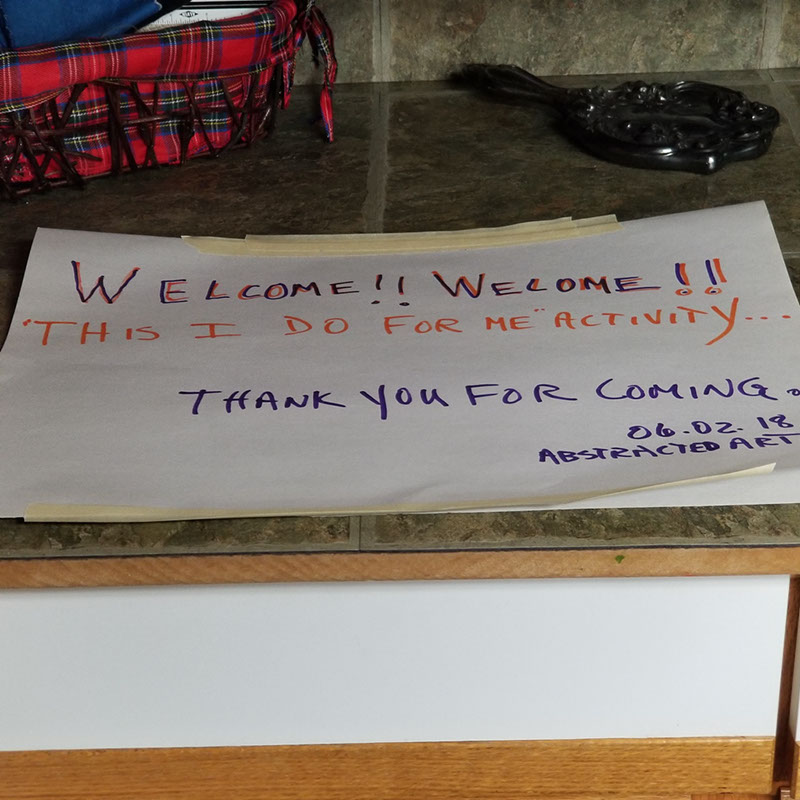 WELCOME!! WELOME!!
"THIS I DO FOR ME" ACTIVITY...
THANK YOU FOR COMING.
06.02.18
ABSTRACTED ART